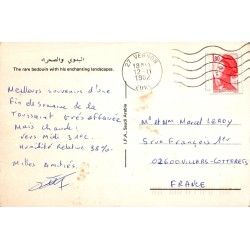 البدوي والصحراء
The rare bedouin with his enchanting landscapes.
27 VERNON
12-11
1982
EURE
Meilleurs souvenirs d'une
fin de semaine de la
Toussaint très
Mais chaude :
vers midi 31°C.
Humidité Relative 38%.
Milles Amitiés.
I.P.A. Saudi Arabia
Mr et Mme Marcel LEROY
5 rue François 1er
02600 VILLERS-COTTERETS
FRANCE